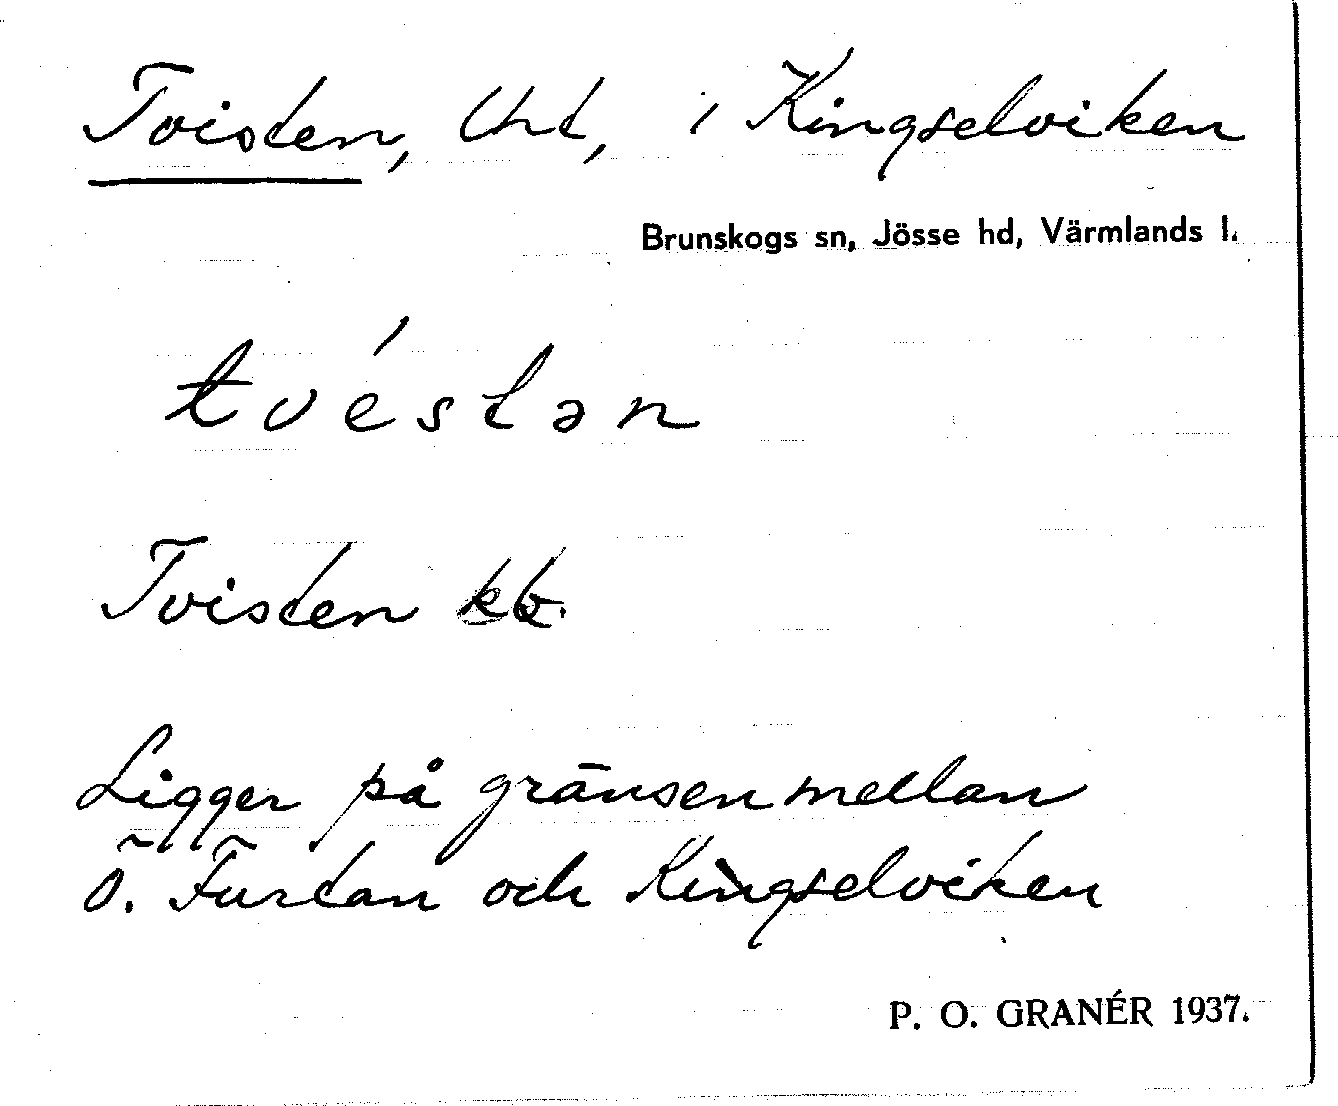 Tvisten, Urt, i Kingselviken
Brunskogs sn, Jösse hd, Värmlands l.
tvéstən
Tvisten kb.
Ligger på gränsen mellan
Ö. Furtan och Kingselviken
P. O. GRANÉR 1937.